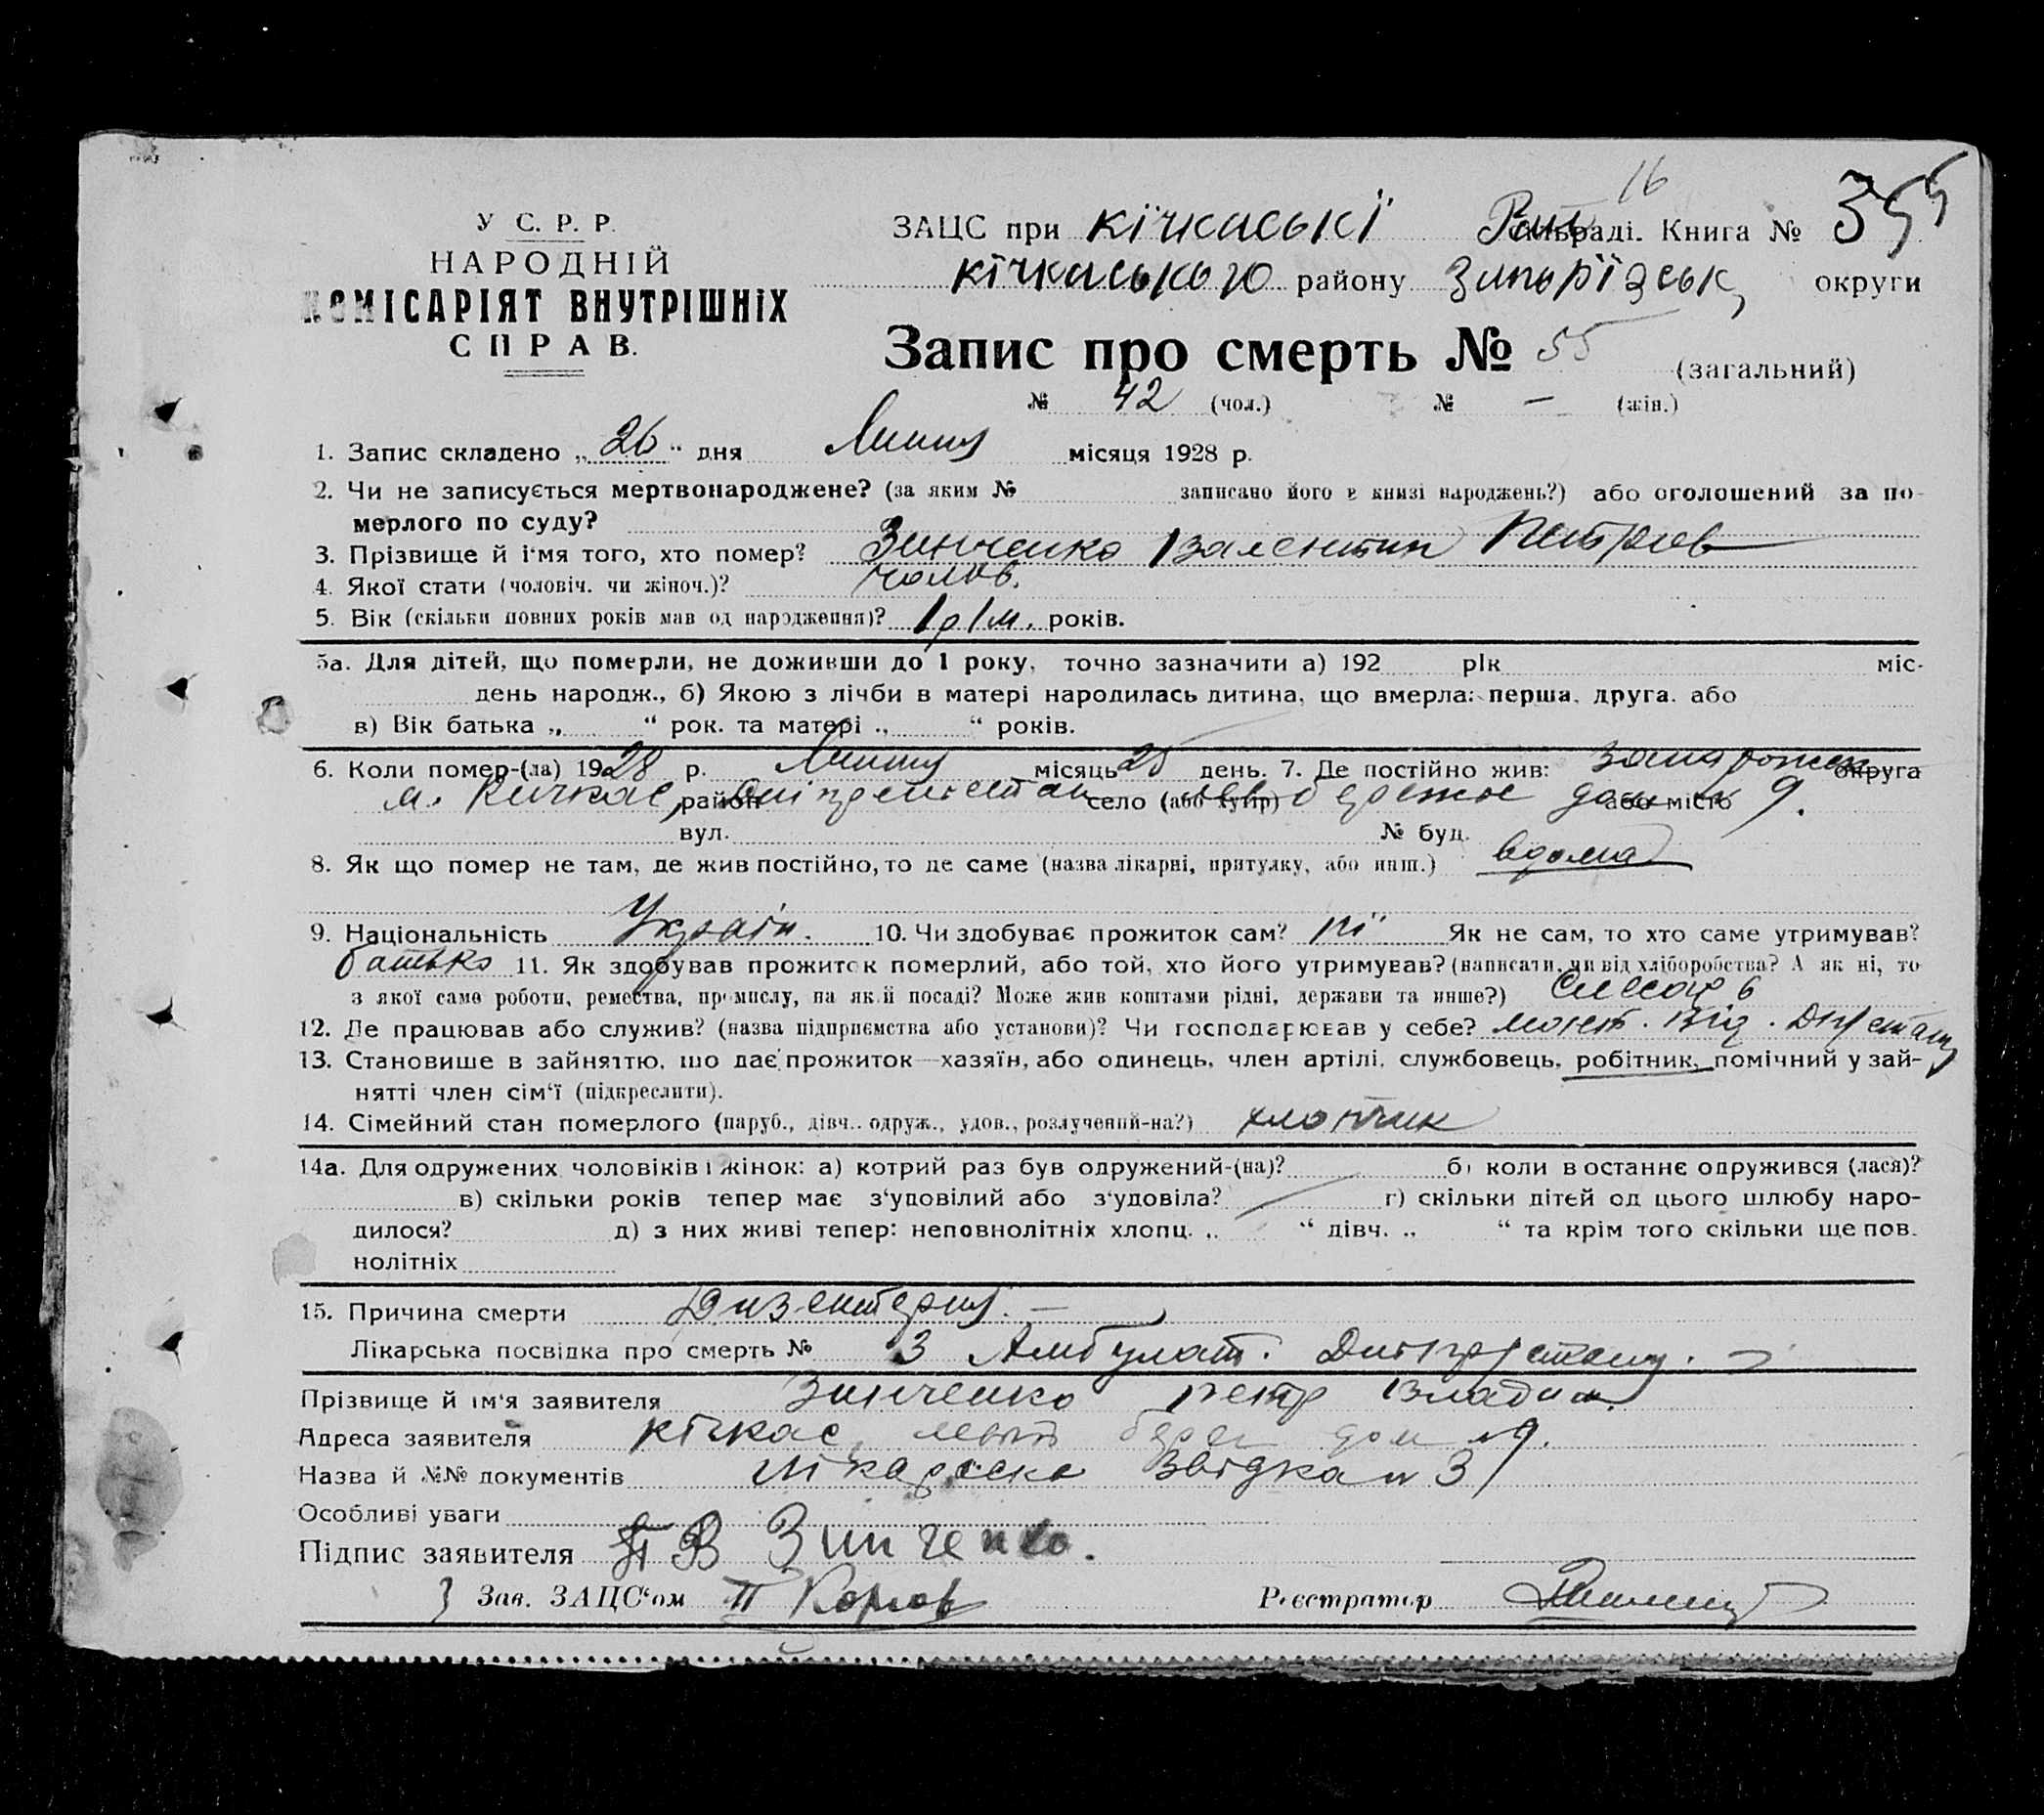 16
У С. Р. Р.
НАРОДНІЙ
КОМІСАРІЯТ ВНУТРІШНІХ
СПРАВ.
ЗАЦС при Кічкаські сільраді. Книга №
Кічкаського району округи
Запис про смерть № 55 (загальний)
№ 42 (чол.) № — (жін.)
1. Запис складено „ 26 “ дня Липня місяця 1928 р.
2. Чи не записується мертвонароджене? (за яким № записано його в книзі народжень?) або оголошений за по-
мерлого по суду?
3. Прізвище й ім'я того, хто помер? Зинченко Валентин Петров
4. Якої стати (чоловіч. чи жіноч.)? чолов.
5. Вік (скільки повних років мав од народження)? 1 р 1 м. років.
5а. Для дітей, що померли, не доживши до 1 року, точно зазначити а) 192 рік міс-
день народж., б) Якою з лічби в матері народилась дитина, що вмерла: перша, друга, або
в) Вік батька „ “ рок. та матері „ “ років.
6. Коли помер-(ла) 1928 р. Липня місяць 25 день. 7. Де постійно жив: округа
м. Кичкас, район село (або хутір) або місто 9.
вул. № буд.
8. Як що помер не там, де жив постійно, то де саме (назва лікарні, притулку, або инш.) вдома
9. Національність Україн. 10. Чи здобуває прожиток сам? ні Як не сам, то хто саме утримував?
батько 11. Як здобував прожиток померлий, або той, хто його утримував? (написати, чи від хліборобства? А як ні, то
з якої саме роботи, ремества, промислу, на якій посаді? Може жив коштами рідні, держави та инше?)
12. Де працював або служив? (назва підприємства або установи)? Чи господарював у себе? монт. від.
13. Становише в зайняттю, що дає прожиток—хазяїн, або одинець, член артілі, службовець, робітник, помічний у зай-
нятті член сім'ї (підкреслити).
14. Сімейний стан померлого (паруб., дівч., одруж., удов., розлучений-на?) хлопчик
14а. Для одружених чоловіків і жінок: а) котрий раз був одружений-(на)? б) коли в останнє одружився (лася)?
в) скільки років тепер має з'удовілий або з'удовіла? г) скільки дітей од цього шлюбу наро-
дилося? д) з них живі тепер: неповнолітніх хлопц. „ “ дівч. „ “ та крім того скільки ще пов.
нолітніх
15. Причина смерти Дизентерия. —
Лікарська посвідка про смерть № 3 Амбулат.
Прізвище й ім'я заявителя Зинченко Петр Владим.
Адреса заявителя Кічкас, дом № 9.
Назва й №№ документів звідка № 3
Особливі уваги
Підпис заявителя П В Зинченко.
Зав. ЗАЦС'ом
Реєстратор